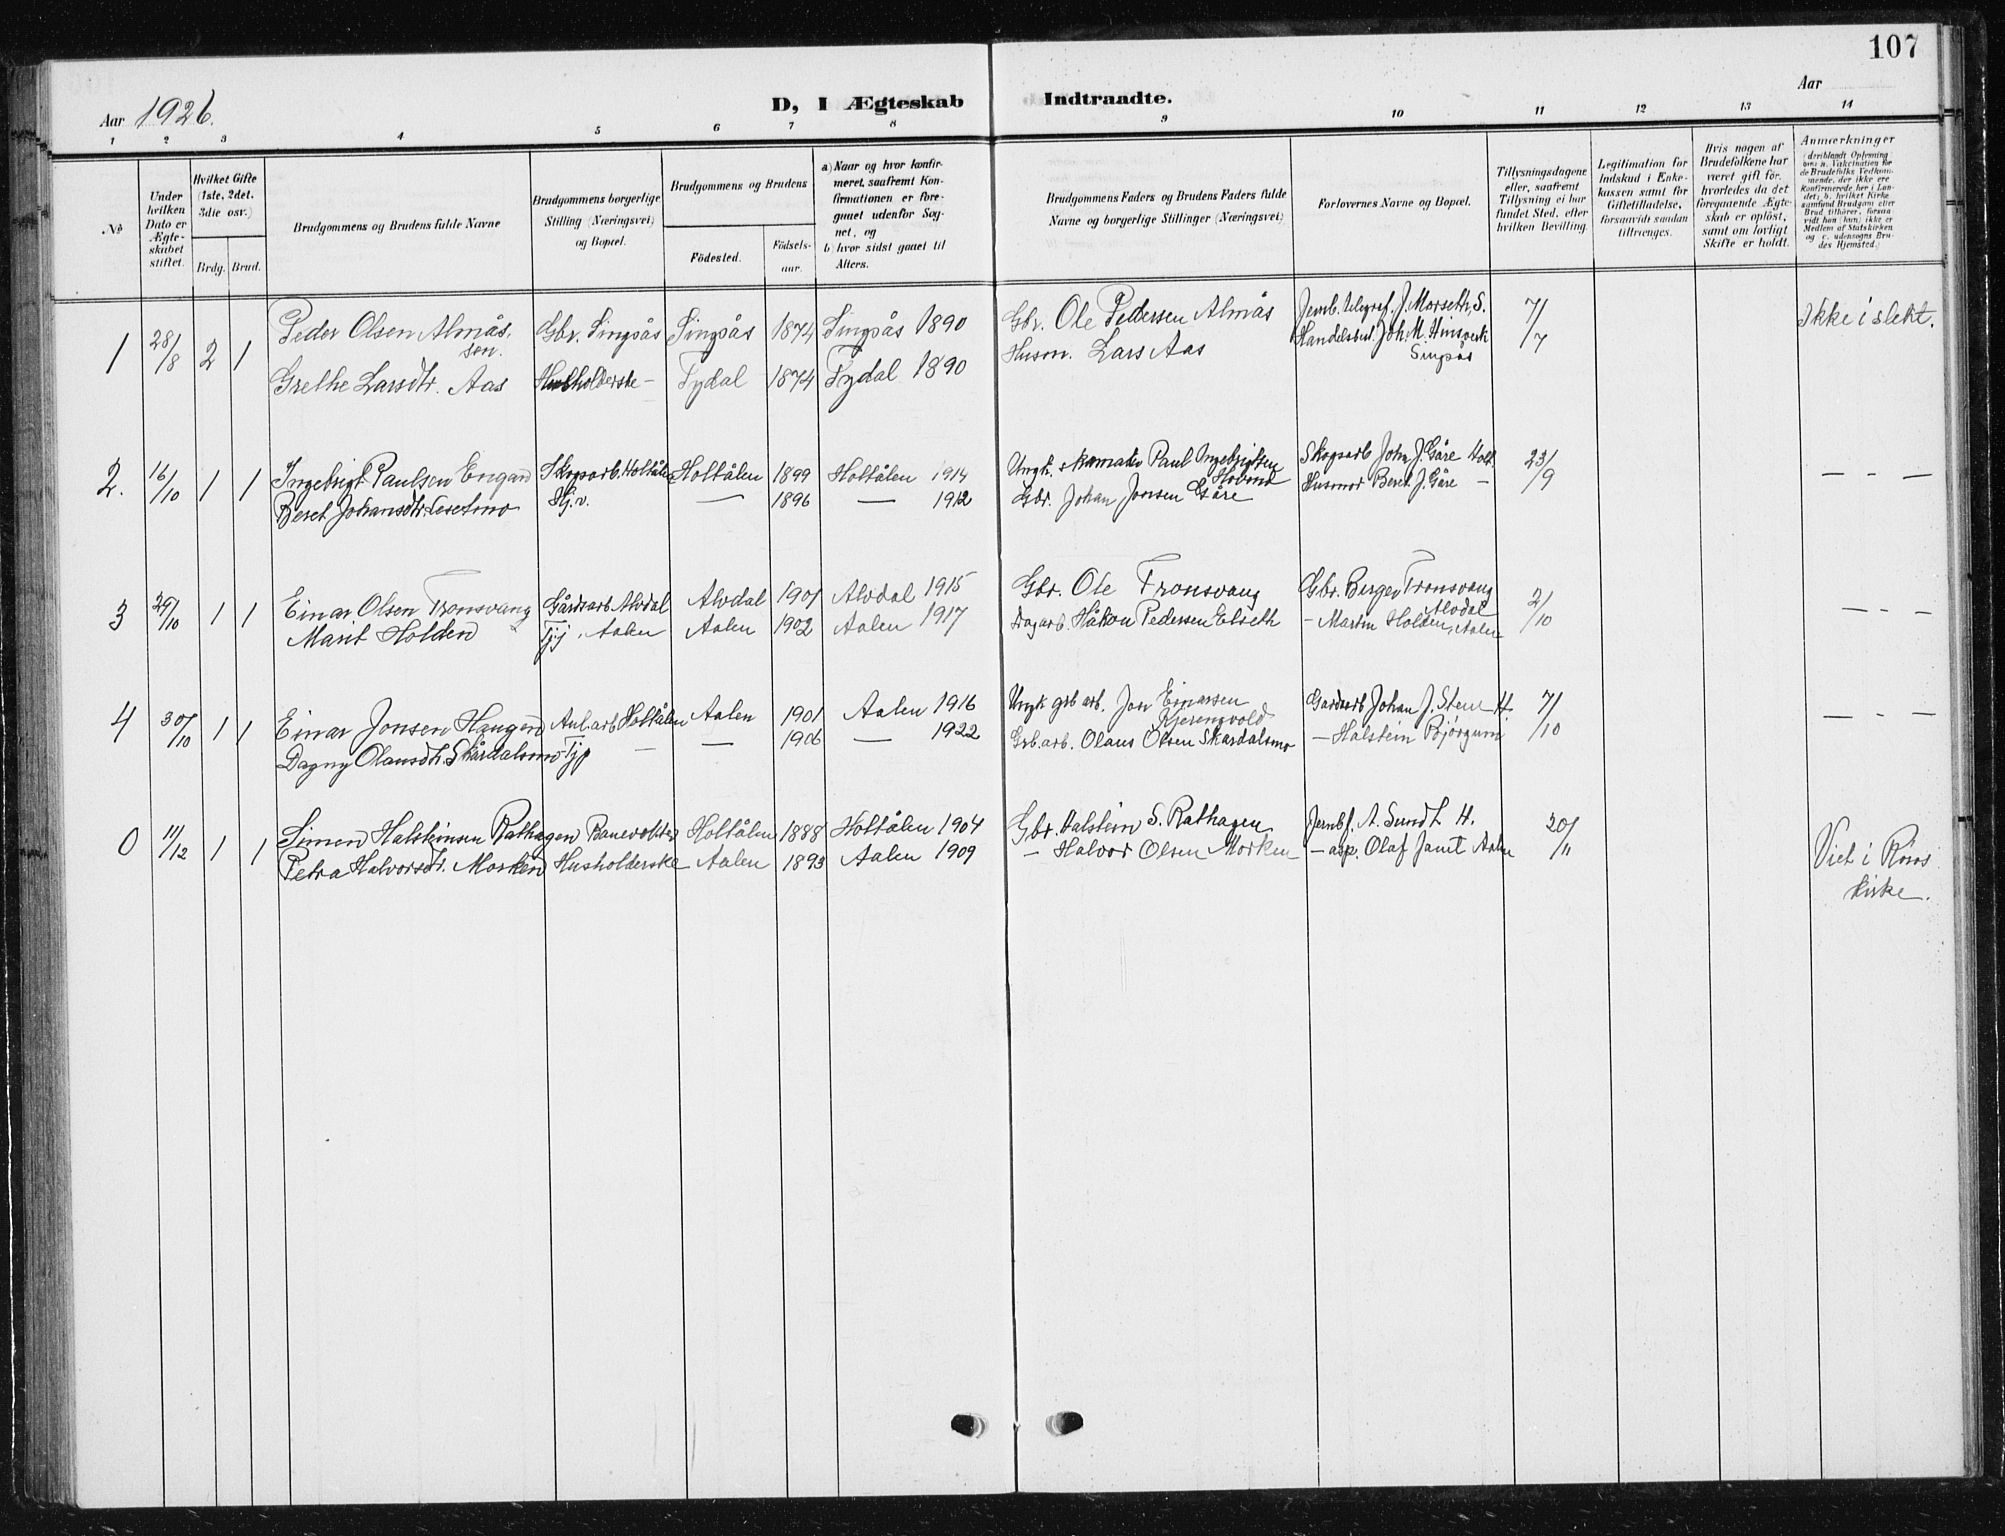 107
Aar 1926.
D, I Ægteskab Indtraadte.
Aar
1 2 3 4 5 6 7 8 9 10 11 12 13 14
No
Under hvilken Dato er Ægteskabet stiftet.
Hvilket Gifte (1ste, 2det, 3die osv.)
Brdg. Brud.
Brudgommens og Brudens fulde Navne
Brudgommens borgerlige Stilling (Næringsvei) og Bopæl.
Brudgommens og Brudens
Födested.
Födselsaar.
a) Naar og hvor konfirmeret, saafremt Konfirmationen er foregaaet udenför Sognet, og
b) hvor sidst gaaet til Alters.
Brudgommens Faders og Brudens Faders fulde Navne og borgerlige Stillinger (Næringsvei)
Forlovernes Navne og Bopæl.
Tillysningsdagene eller, saafremt Tillysning ei har fundet Sted, efter hvilken Bevilling.
Legitimation for Indskud i Enkekassen samt för Giftetilladelse, forsaavidt saadan tiltrænges.
Hvis nogen af Brudefolkene har været gift för, hvorledes da det foregaaende Ægteskab er oplöst, samt om lovligt Skifte er holdt.
Anmærkninger
1 28/8 2 1 Peder Olsen Almås, sen. Gbr. Singsås Singsås 1874 Singsås 1890 Gbr. Ole Pedersen Almås Jernb. telegraf. J. Morseth, S. 7/7 Ikke i slekt.
Grethe Larsdtr. Aas Husholderske — Tydal 1874 Tydal 1890 Husm. Lars Aas Joh. M. Singsås
2. 16/10 1 1 Ingebrigt Paulsen Engan Skogarb. Holtålen Holtålen 1899 Holtålen 1914 Ungk. Paul Ingebrigtsen Hovind Skogarb John J. Gåre Holt. 23/9 — - —
Beret Johansdtr. Hj.v. — 1896 — 1912 Gbr. Johan Jonsen Gåre Husmor Beret J. Gåre —
3 29/10 1 1 Einar Olsen Tronsvang Gårdsarb. Alvdal Alvdal 1901 Alvdal 1915 Gbr. Ole Tronsvang Gbr. Birger Tronsvang Alvdal 2/10 — - —
Marit Holden Tjj. Aalen Aalen 1902 Aalen 1917 Dagarb. Håkon Pedersen Elveth - Martin Holden, Aalen
4 30/10 1 1 Einar Jonsen Haugen Anl. arb Holtålen Aalen 1901 Aalen 1916 Ungk grb arb. Jon Einarsen Gårdarb Johan J. Sten H. 7/10 — - —
Dagny Olausdtr. Skårdalsmo Tjp — — 1906 — 1922 Grb. arb. Olaus Olsen Skardalsmo — Halstein Bjørgum
0 11/12 1 1 Simen Halsteinsen Rathagen Banevokter Holtålen 1888 Holtålen 1904 Gbr. Halstein S. Rathagen Jernbf. A. Sundt H. 20/11 Viet i Røros kirke.
Petra Halvorsdtr. Morken Husholderske Aalen 1893 Aalen 1909 — Halvor Olsen Morken — asp. Olaf Aalen